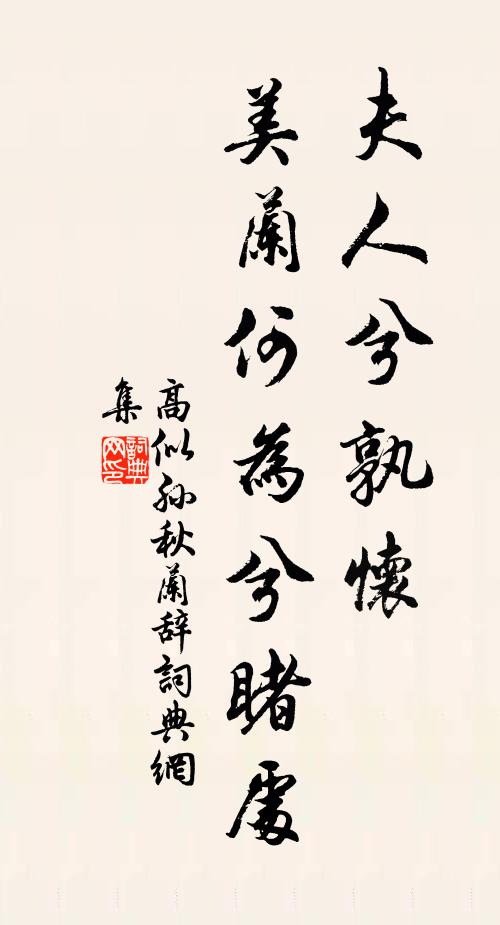 夫人兮孰懷
美蘭何為兮睹處
高似孫秋蘭辞詞典網
集
詞典网印